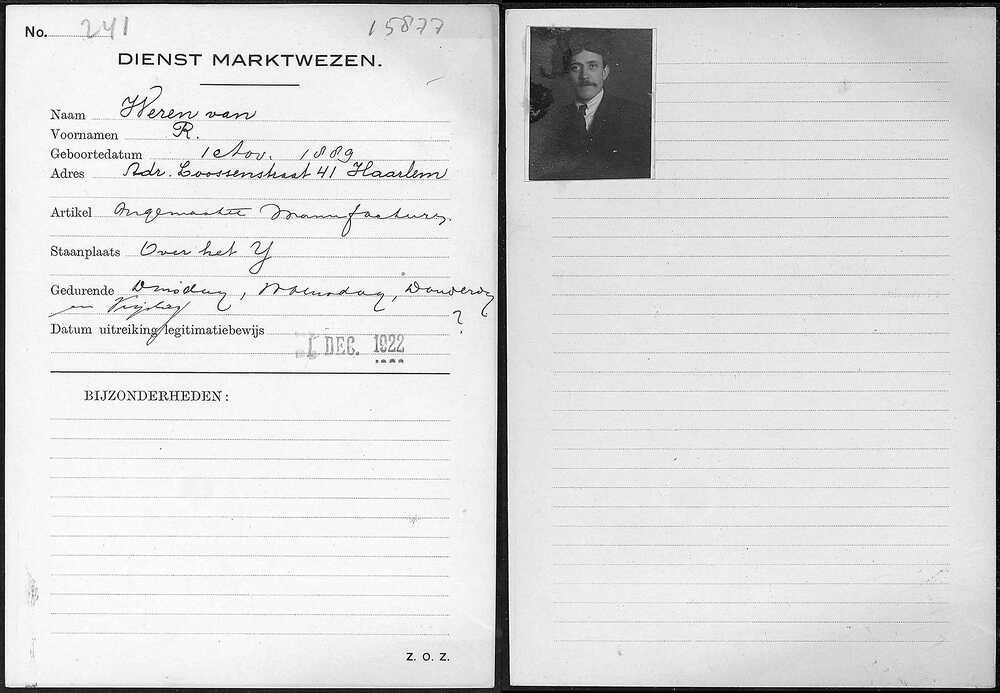 No. 241 15877
DIENST MARKTWEZEN.
Naam Weren van
Voornamen R.
Geboortedatum 1 Nov. 1889
Adres Adr. Loossenstraat 41 Haarlem
Artikel Ongemaakte Manufacturen
Staanplaats Over het Y
Gedurende Dinsdag, Woensdag, Donderdag
en Vrijdag ?
Datum uitreiking legitimatiebewijs
1 DEC. 1922
BIJZONDERHEDEN:
Z. O. Z.